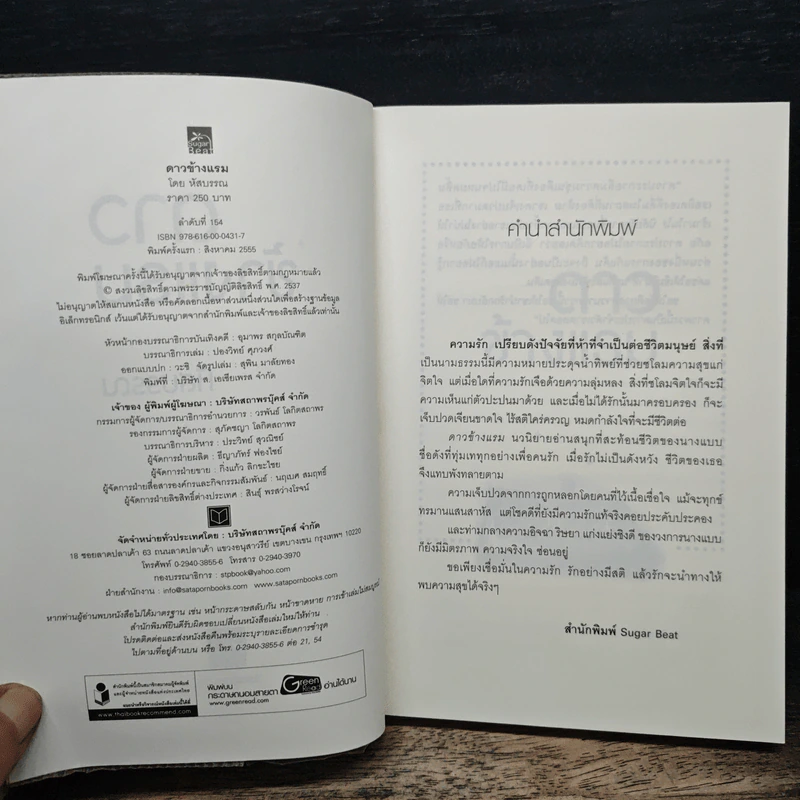 Sugar
Beat
ดาวข้างแรม
โดย หัสบรรณ
ราคา 250 บาท
ลำดับที่ 154
ISBN 978-616-00-0431-7
พิมพ์ครั้งแรก : สิงหาคม 2555
พิมพ์โฆษณาครั้งนี้ได้รับอนุญาตจากเจ้าของลิขสิทธิ์ตามกฎหมายแล้ว
© สงวนลิขสิทธิ์ตามพระราชบัญญัติลิขสิทธิ์ พ.ศ. 2537
ไม่อนุญาตให้สแกนหนังสือ หรือคัดลอกเนื้อหาส่วนหนึ่งส่วนใดเพื่อสร้างฐานข้อมูล
อิเล็กทรอนิกส์ เว้นแต่ได้รับอนุญาตจากสำนักพิมพ์และเจ้าของลิขสิทธิ์แล้วเท่านั้น
หัวหน้ากองบรรณาธิการบันเทิงคดี : อุมาพร สกุลบัณฑิต
บรรณาธิการเล่ม : ปองวิทย์ ศุภวงศ์
ออกแบบปก : วะชิ จัดรูปเล่ม : สุพิน มาลัยทอง
พิมพ์ที่ : บริษัท ส. เอเซียเพรส จำกัด
เจ้าของ ผู้พิมพ์ผู้โฆษณา : บริษัทสถาพรบุ๊คส์ จำกัด
กรรมการผู้จัดการ/บรรณาธิการอำนวยการ : วรพันธ์ โลกิตสถาพร
รองกรรมการผู้จัดการ : สุภัคชญา โลกิตสถาพร
บรรณาธิการบริหาร : ประวิทย์ สุวณิชย์
ผู้จัดการฝ่ายผลิต : ธีญาภัทร์ ฟองไชย์
ผู้จัดการฝ่ายขาย : กิ่งแก้ว ลิกขะไชย
ผู้จัดการฝ่ายสื่อสารองค์กรและกิจกรรมสัมพันธ์ : นฤเบศ สมฤทธิ์
ผู้จัดการฝ่ายลิขสิทธิ์ต่างประเทศ : สินธุ์ พรสว่างโรจน์
จัดจำหน่ายทั่วประเทศโดย : บริษัทสถาพรบุ๊คส์ จำกัด
18 ซอยลาดปลาเค้า 63 ถนนลาดปลาเค้า แขวงอนุสาวรีย์ เขตบางเขน กรุงเทพฯ 10220
โทรศัพท์ 0-2940-3855-6 โทรสาร 0-2940-3970
กองบรรณาธิการ : stpbook@yahoo.com
ฝ่ายสำนักงาน : info@satapornbooks.com www.satapornbooks.com
หากท่านผู้อ่านพบหนังสือไม่ได้มาตรฐาน เช่น หน้ากระดาษสลับกัน หน้าขาดหาย การเข้าเล่มไม่สมบูรณ์
สำนักพิมพ์ยินดีรับผิดชอบเปลี่ยนหนังสือเล่มใหม่ให้ท่าน
โปรดติดต่อและส่งหนังสือคืนพร้อมระบุรายละเอียดการชำรุด
ไปตามที่อยู่ด้านบน หรือ โทร. 0-2940-3855-6 ต่อ 21, 54
สำนักพิมพ์นี้เป็นสมาชิกสมาคมผู้จัดพิมพ์
และผู้จำหน่ายหนังสือแห่งประเทศไทย
www.thaibookrecommend.com
พิมพ์บน
กระดาษถนอมสายตา
www.greenread.com
Green
Read
อ่านได้นาน
คำนำสำนักพิมพ์
ความรัก เปรียบดังปัจจัยที่ห้าที่จำเป็นต่อชีวิตมนุษย์ สิ่งที่
เป็นนามธรรมนี้มีความหมายประดุจน้ำทิพย์ที่ช่วยชโลมความสุขแก่
จิตใจ แต่เมื่อใดที่ความรักเจือด้วยความลุ่มหลง สิ่งที่ชโลมจิตใจก็จะมี
ความเห็นแก่ตัวปะปนมาด้วย และเมื่อไม่ได้รักนั้นมาครอบครอง ก็จะ
เจ็บปวดเจียนขาดใจ ไร้สติใคร่ครวญ หมดกำลังใจที่จะมีชีวิตต่อ
ดาวข้างแรม นวนิยายอ่านสนุกที่สะท้อนชีวิตของนางแบบ
ชื่อดังที่ทุ่มเททุกอย่างเพื่อคนรัก เมื่อรักไม่เป็นดังหวัง ชีวิตของเธอ
จึงแทบพังทลายตาม
ความเจ็บปวดจากการถูกหลอกโดยคนที่ไว้เนื้อเชื่อใจ แม้จะทุกข์
ทรมานแสนสาหัส แต่โชคดีที่ยังมีความรักแท้จริงคอยประคับประคอง
และท่ามกลางความอิจฉา ริษยา แก่งแย่งชิงดี ของวงการนางแบบ
ก็ยังมีมิตรภาพ ความจริงใจ ซ่อนอยู่
ขอเพียงเชื่อมั่นในความรัก รักอย่างมีสติ แล้วรักจะนำทางให้
พบความสุขได้จริงๆ
สำนักพิมพ์ Sugar Beat